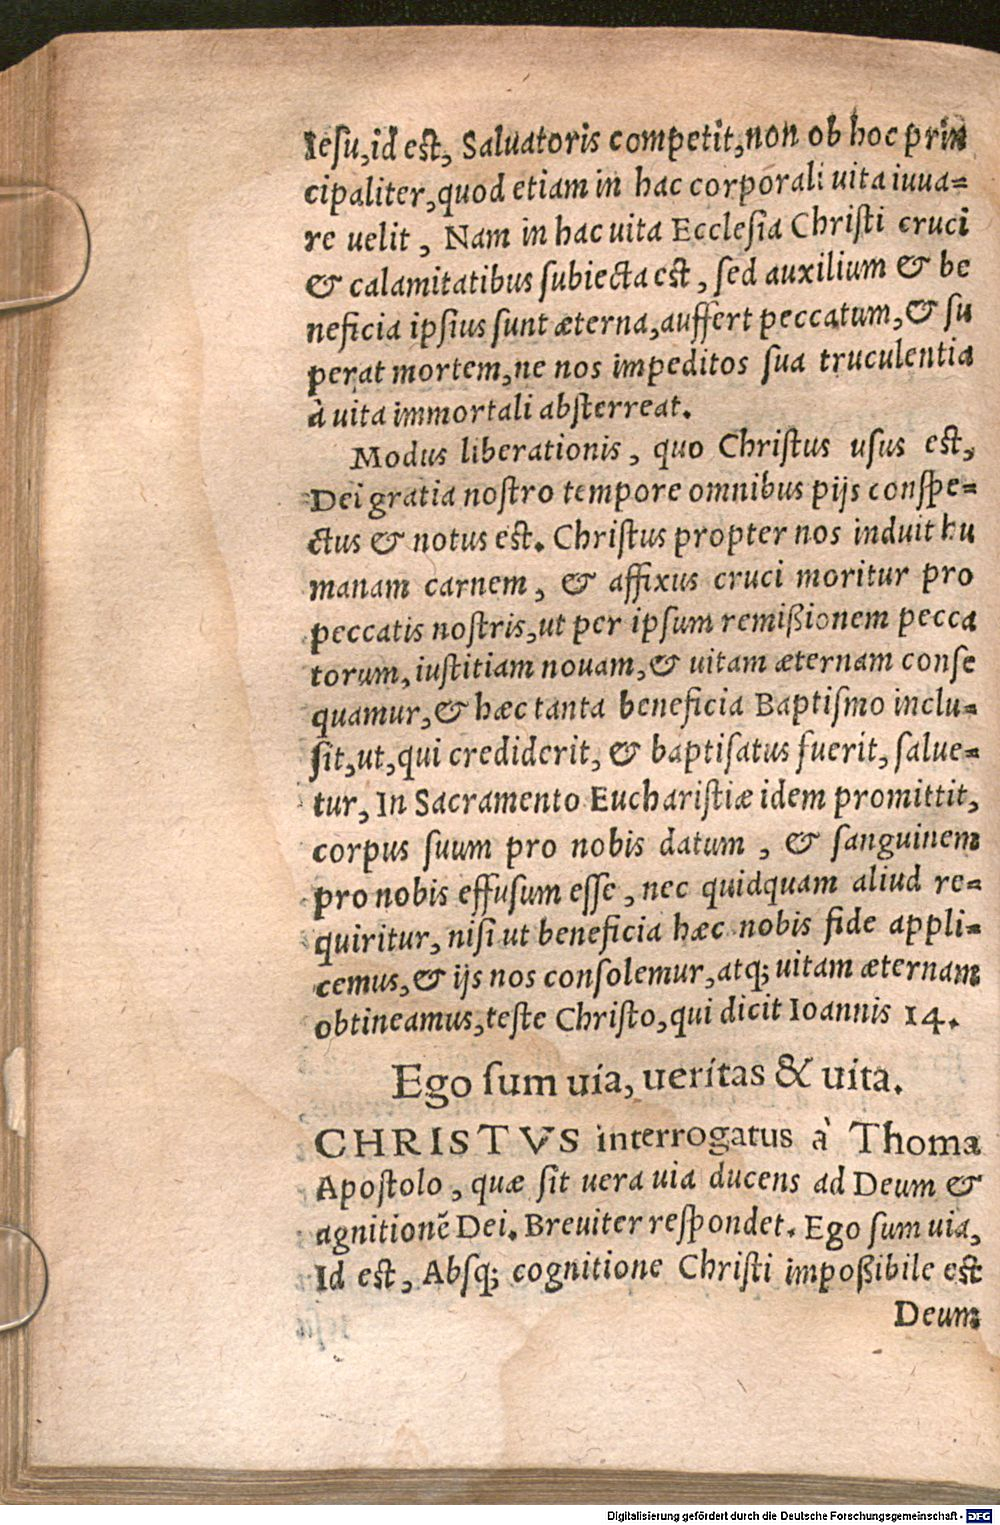 Iesu,id est, Saluatoris competit,non ob hoc prin
cipaliter,quod etiam in hac corporali uita iuua=
re uelit, Nam in hac uita Ecclesia Christi cruci
& calamitatibus subiecta est, sed auxilium & be
neficia ipsius sunt æterna,auffert peccatum,& su
perat mortem,ne nos impeditos sua truculentia
à uita immortali absterreat.
Modus liberationis, quo Christus usus est,
Dei gratia nostro tempore omnibus pijs conspe=
ctus & notus est. Christus propter nos induit hu
manam carnem, & affixus cruci moritur pro
peccatis nostris,ut per ipsum remißionem pecca
torum, iustitiam nouam,& uitam æternam conse
quamur,& hæc tanta beneficia Baptismo inclu=
sit,ut,qui crediderit, & baptisatus fuerit, salue=
tur, In Sacramento Eucharistiæ idem promittit,
corpus suum pro nobis datum, & sanguinem
pro nobis effusum esse, nec quidquam aliud re=
quiritur, nisi ut beneficia hæc nobis fide appli=
cemus,& ijs nos consolemur,atq; uitam æternam
obtineamus,teste Christo,qui dicit Ioannis 14.
Ego sum uia, ueritas & uita.
CHRISTVS interrogatus à Thoma
Apostolo, quæ sit uera uia ducens ad Deum &
agnitionẽ Dei. Breuiter respondet. Ego sum uia,
Id est, Absq; cognitione Christi impoßibile est
Deum
Digitalisierung gefördert durch die Deutsche Forschungsgemeinschaft - DFG